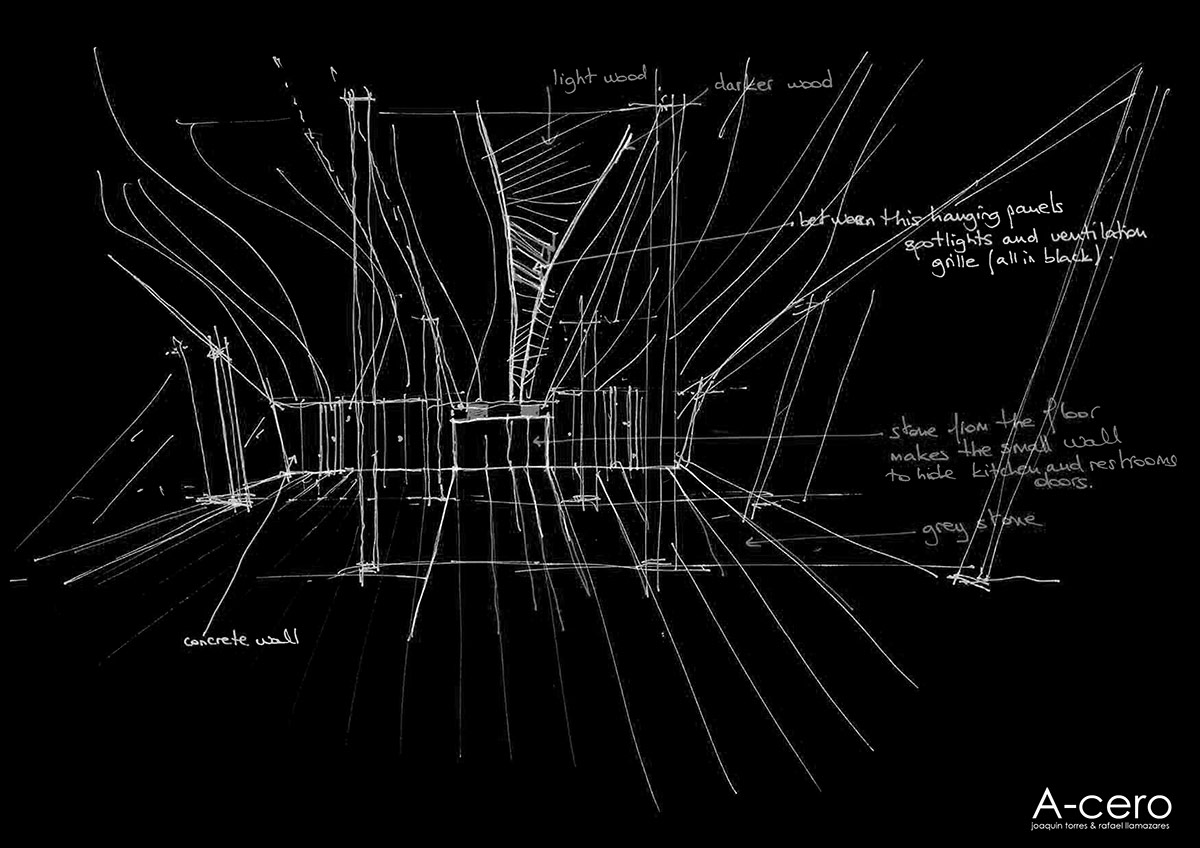 light wood
darker wood
between this hanging panels
spotlights and ventilation
grille (all in black).
stone from the floor
makes the small wall
to hide kitchen and restrooms
doors.
grey stone
concrete wall
A-cero
joaquin torres & rafael llamazares